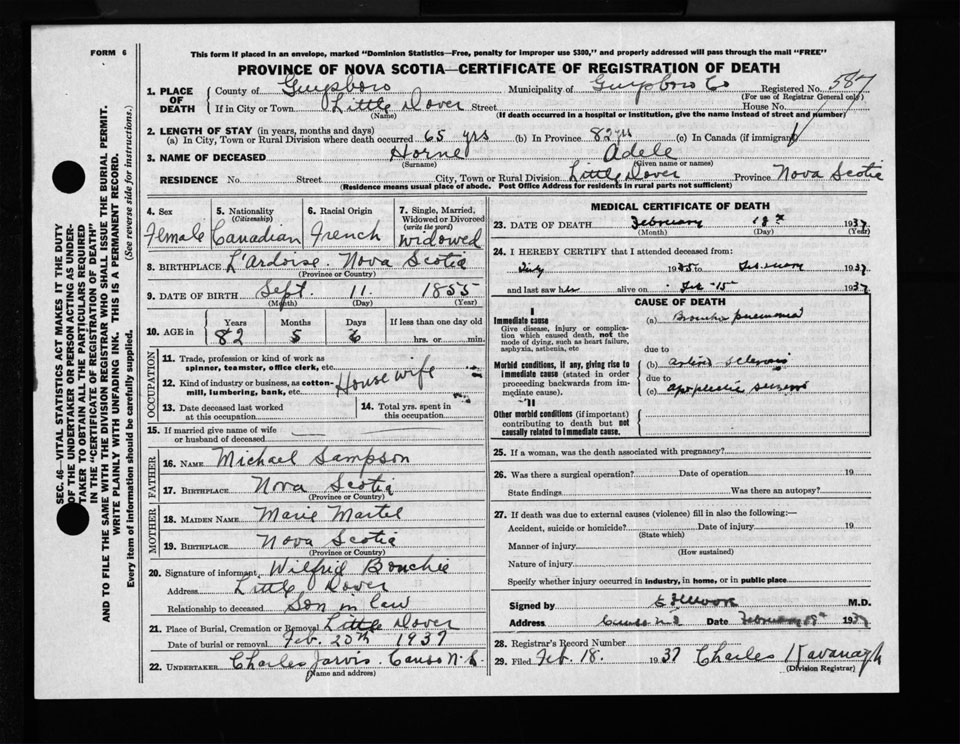 FORM 6
This form if placed in an envelope, marked "Dominion Statistics—Free, penalty for improper use $300," and properly addressed will pass through the mail "FREE"
PROVINCE OF NOVA SCOTIA—CERTIFICATE OF REGISTRATION OF DEATH
1. PLACE OF DEATH
County of Guysboro Municipality of Guysboro Co Registered No. 587
(For use of Registrar General only)
If in City or Town Little Dover Street House No.
(Name) (If death occurred in a hospital or institution, give the name instead of street and number)
2. LENGTH OF STAY (in years, months and days)
(a) In City, Town or Rural Division where death occurred 65 yrs (b) In Province 82 yrs (c) In Canada (if immigrant)
3. NAME OF DECEASED Horne Adele
(Surname) (Given name or names)
RESIDENCE No. Street City, Town or Rural Division Little Dover Province Nova Scotia
(Residence means usual place of abode. Post Office Address for residents in rural parts not sufficient)
4. Sex Female
5. Nationality (Citizenship) Canadian
6. Racial Origin French
7. Single, Married, Widowed or Divorced (write the word) Widowed
8. BIRTHPLACE L'Ardoise. Nova Scotia
(Province or Country)
9. DATE OF BIRTH Sept. 11. 1855
(Month) (Day) (Year)
10. AGE in Years Months Days If less than one day old
82 5 6 hrs. or min.
OCCUPATION
11. Trade, profession or kind of work as spinner, teamster, office clerk, etc.
12. Kind of industry or business, as cotton-mill, lumbering, bank, etc. House wife
13. Date deceased last worked at this occupation
14. Total yrs. spent in this occupation
15. If married give name of wife or husband of deceased
FATHER
16. NAME Michael Sampson
17. BIRTHPLACE Nova Scotia
(Province or Country)
MOTHER
18. MAIDEN NAME Marie Martel
19. BIRTHPLACE Nova Scotia
(Province or Country)
20. Signature of informant Wilfrid Bouchie
Address Little Dover
Relationship to deceased Son in law
21. Place of Burial, Cremation or Removal Little Dover
Date of burial or removal Feb. 20th 1937
22. UNDERTAKER Charles Jarvis. Canso N.S.
(Name and address)
MEDICAL CERTIFICATE OF DEATH
23. DATE OF DEATH February 18th 1937
(Month) (Day) (Year)
24. I HEREBY CERTIFY that I attended deceased from:
July 1935 to February 1937
and last saw her alive on Feb-15 1937
CAUSE OF DEATH
I
Immediate cause
Give disease, injury or complication which caused death, not the mode of dying, such as heart failure, asphyxia, asthenia, etc
(a) Broncho pneumonia
due to
Morbid conditions, if any, giving rise to immediate cause (stated in order proceeding backwards from immediate cause).
(b) arterio sclerosis
due to
(c) apoplectic seizure
II
Other morbid conditions (if important) contributing to death but not causally related to immediate cause.
25. If a woman, was the death associated with pregnancy?
26. Was there a surgical operation? Date of operation 19
State findings Was there an autopsy?
27. If death was due to external causes (violence) fill in also the following:—
Accident, suicide or homicide? Date of injury 19
(State which)
Manner of injury
(How sustained)
Nature of injury
Specify whether injury occurred in industry, in home, or in public place
Signed by Moore M.D.
Address Canso N.S. Date February 1937
28. Registrar's Record Number
29. Filed Feb. 18. 1937 Charles Kavanagh
(Division Registrar)
SEC. 46—VITAL STATISTICS ACT MAKES IT THE DUTY
OF THE UNDERTAKER OR PERSON ACTING AS UNDER-
TAKER TO OBTAIN ALL THE PARTICULARS REQUIRED
IN THE "CERTIFICATE OF REGISTRATION OF DEATH"
AND TO FILE THE SAME WITH THE DIVISION REGISTRAR WHO SHALL ISSUE THE BURIAL PERMIT.
WRITE PLAINLY WITH UNFADING INK. THIS IS A PERMANENT RECORD.
Every item of information should be carefully supplied. (See reverse side for instructions.)